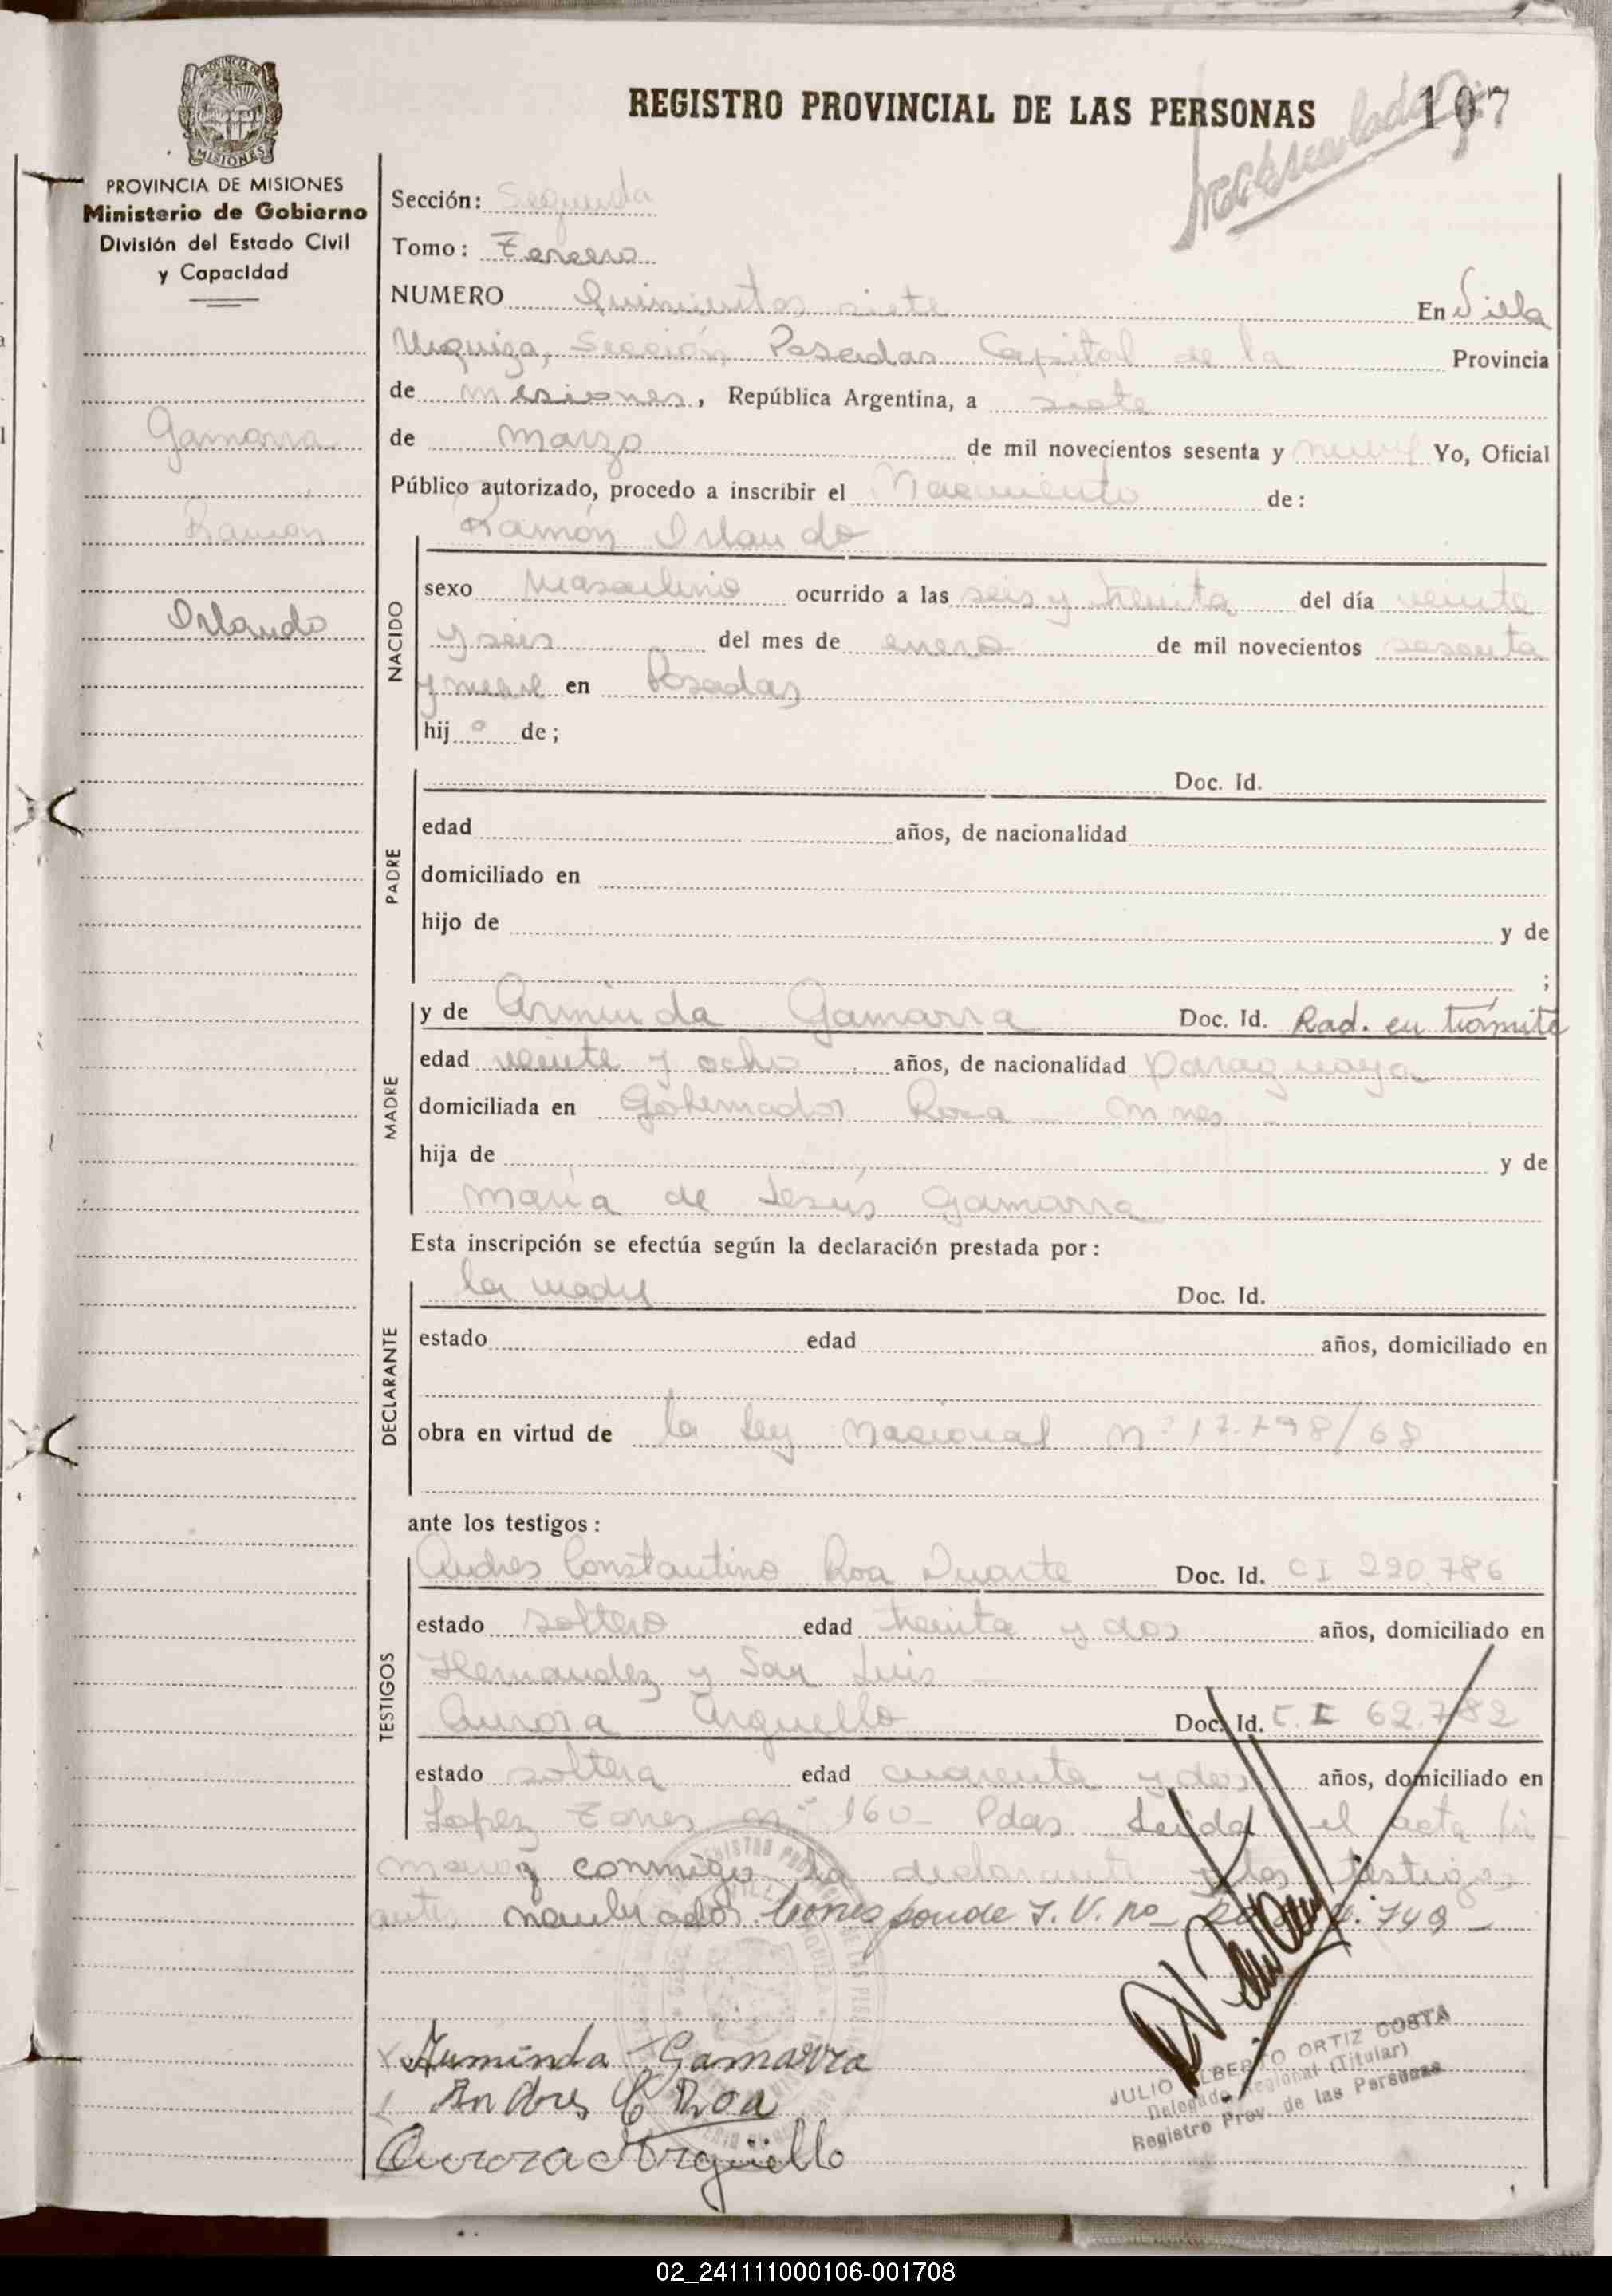 REGISTRO PROVINCIAL DE LAS PERSONAS
107
PROVINCIA DE MISIONES
Ministerio de Gobierno
División del Estado Civil
y Capacidad
Gamarra
Ramón
Orlando
Sección: Segunda
Tomo: Tercero
NUMERO Quinientos siete En Villa
Urquiza, Sección Posadas Capital de la Provincia
de Misiones, República Argentina, a siete
de marzo de mil novecientos sesenta y nueve Yo, Oficial
Público autorizado, procedo a inscribir el Nacimiento de:
NACIDO
Ramón Orlando
sexo Masculino ocurrido a las seis y treinta del día veinte
y seis del mes de enero de mil novecientos sesenta
y nueve en Posadas
hij o de;
PADRE
Doc. Id.
edad años, de nacionalidad
domiciliado en
hijo de y de
;
MADRE
y de Arminda Gamarra Doc. Id. Rad. en trámite
edad veinte y ocho años, de nacionalidad paraguaya
domiciliada en Gobernador Roca Mnes
hija de y de
María de Jesús Gamarra
Esta inscripción se efectúa según la declaración prestada por:
DECLARANTE
la madre Doc. Id.
estado edad años, domiciliado en
obra en virtud de la ley nacional nº 17.798/68
ante los testigos:
TESTIGOS
Andres Constantino Roa Duarte Doc. Id. CI 220.786
estado soltero edad treinta y dos años, domiciliado en
Hernandez y San Luis
Aurora Arguello Doc. Id. C.I 62.782
estado soltera edad cuarenta y dos años, domiciliado en
Lopez Torres nº 160- Pdas Leida el acta fir-
maron conmigo la declarante y los testigos
antes nombrados. Corresponde
Arminda Gamarra
Andres C Roa
Aurora Argüello
JULIO ALBERTO ORTIZ COSTA
Delegado Regional (Titular)
Registro Prov. de las Personas
02_241111000106-001708